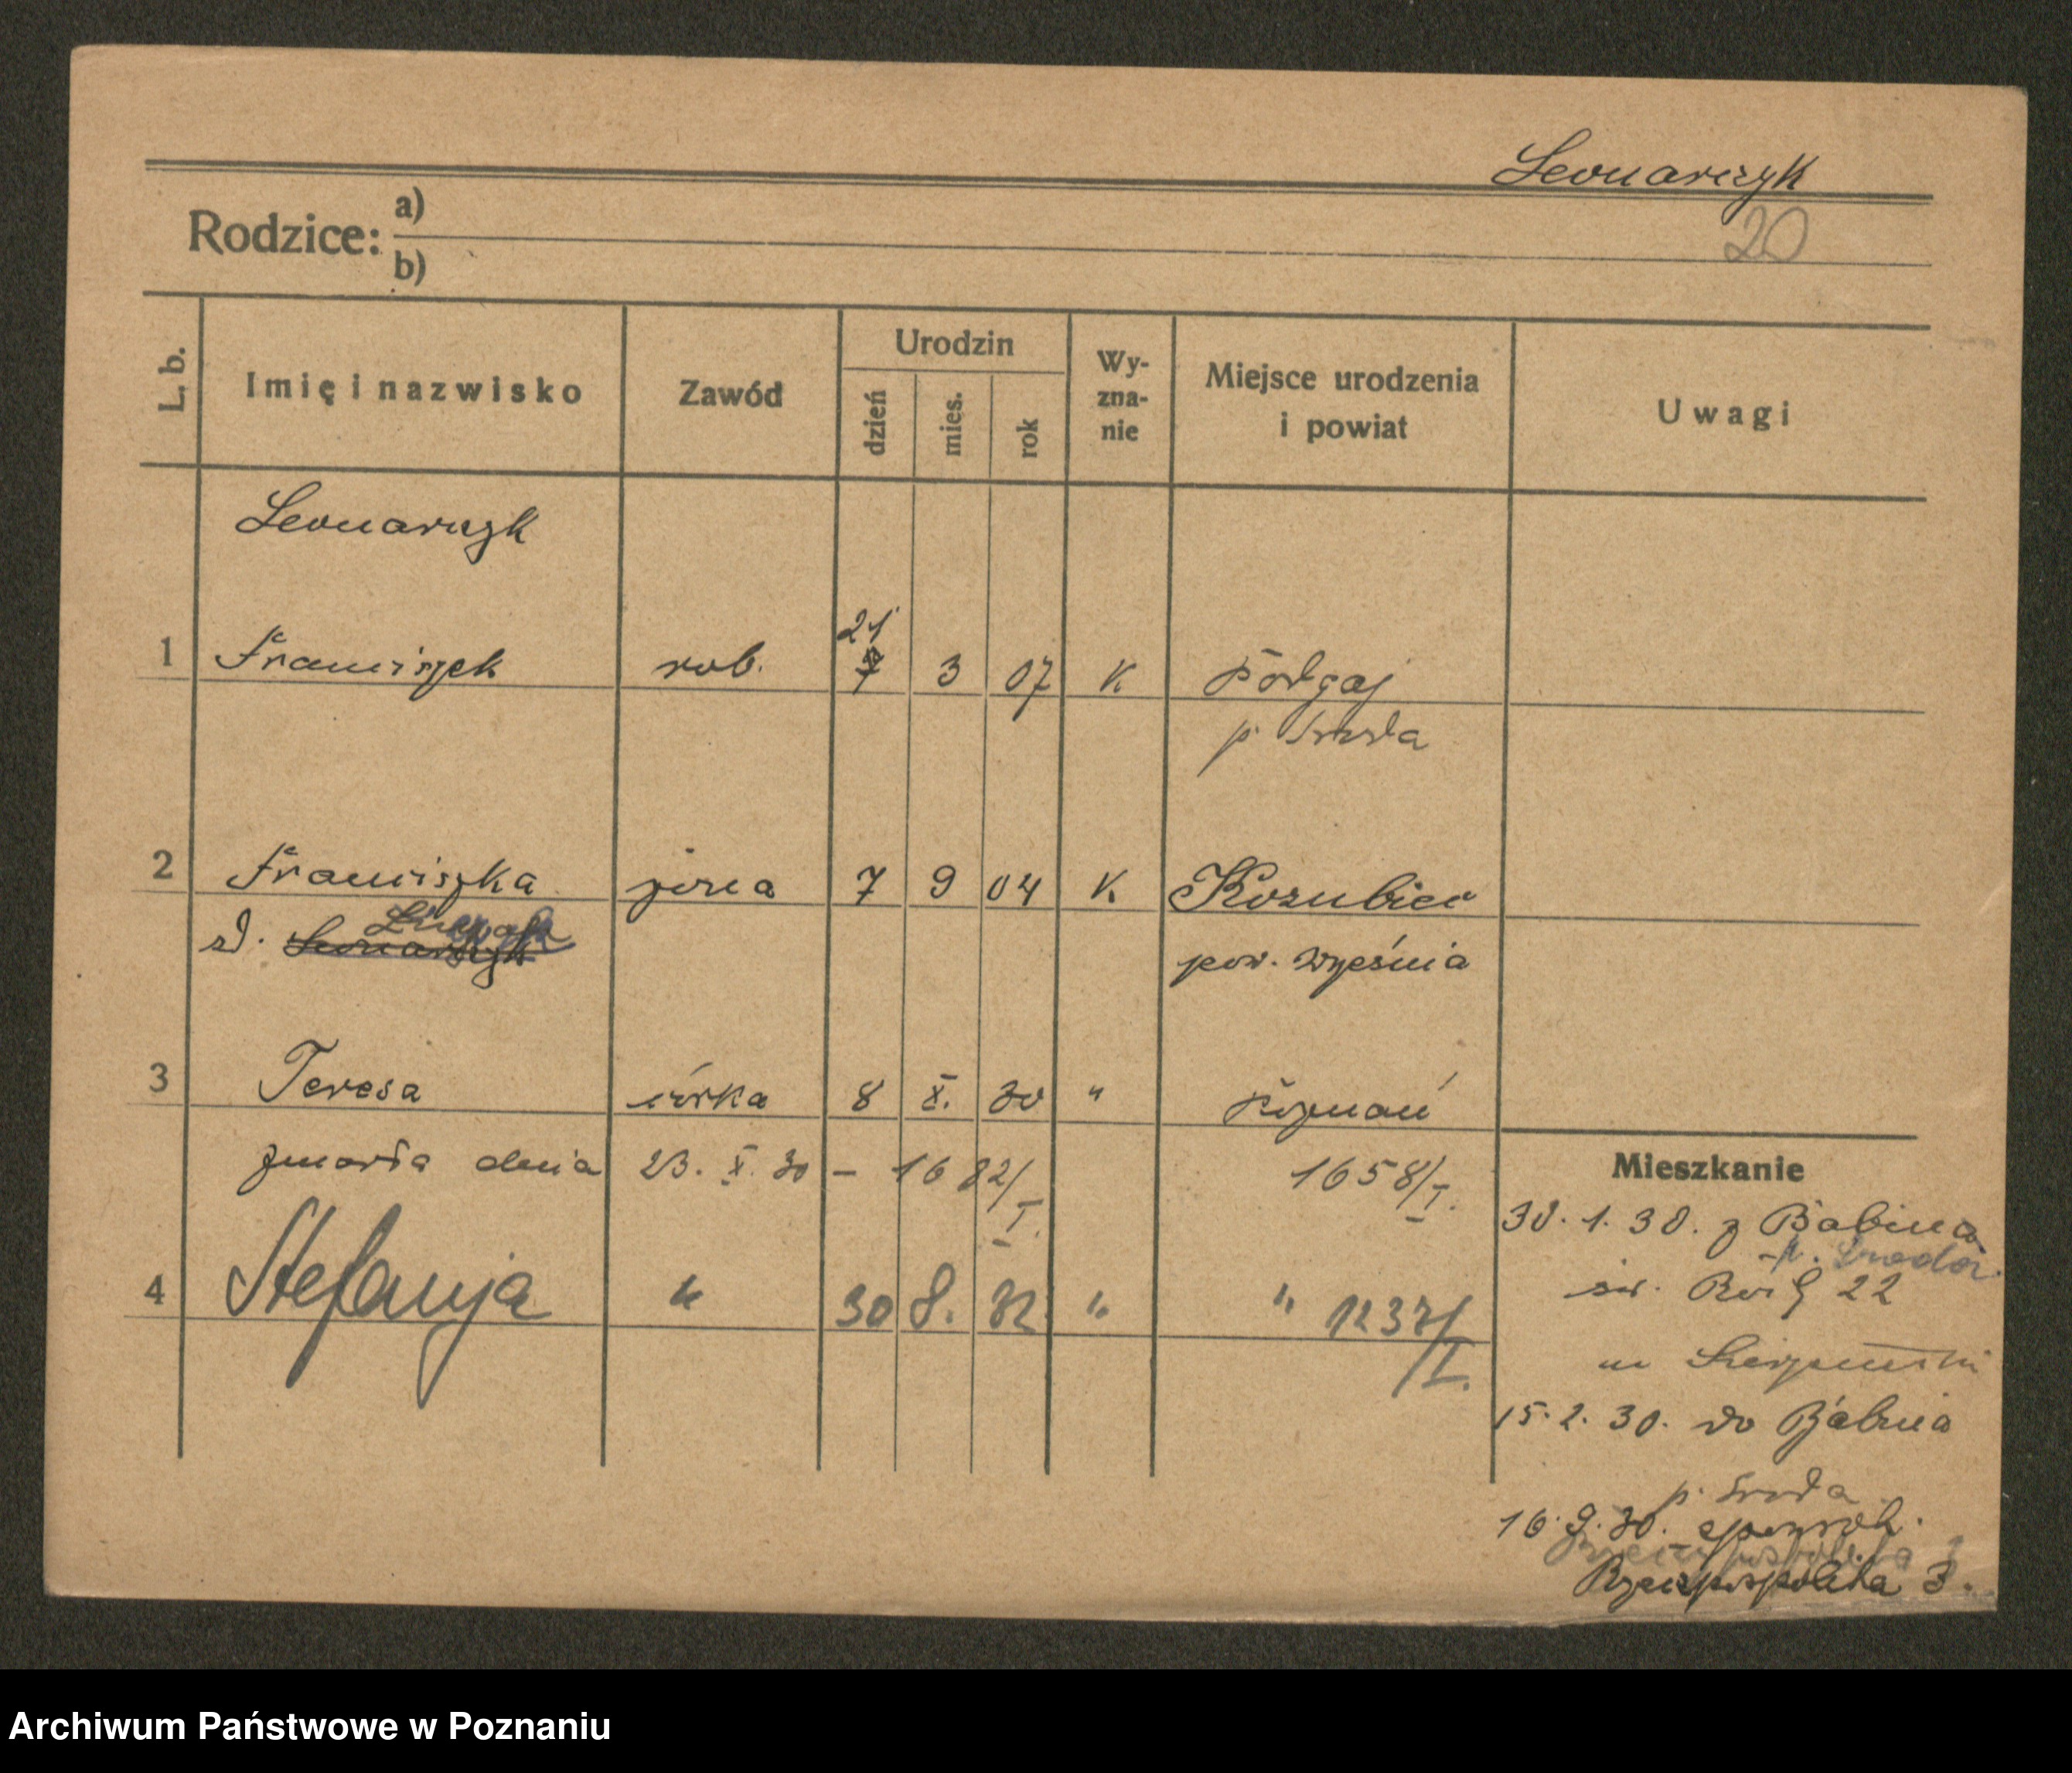 Leonarczyk
Rodzice: a)
b)
20
L. b.
Imię i nazwisko
Zawód
Urodzin
dzień
mies.
rok
Wy-
zna-
nie
Miejsce urodzenia
i powiat
Uwagi
Leonarczyk
21
1 Franciszek rob. 7 3 07 K Podgaj
p. Środa
2 Franciszka żona 7 9 04 K Kozubiec
z d. Leonarczyk
pow. Września
3 Teresa córka 8 X. 30 " Poznań
zmarła dnia 23. X. 30 – 1682/I. 1658/I.
4 Stefanja " 30 8. 32 " " 1237/I.
Mieszkanie
30. 1. 30. z Babina
p. Środa.
św. Roch 22
m
15. 2. 30. do Babina
p. Środa
16. 9. 30.
Rzeczpospolita 3.
Archiwum Państwowe w Poznaniu